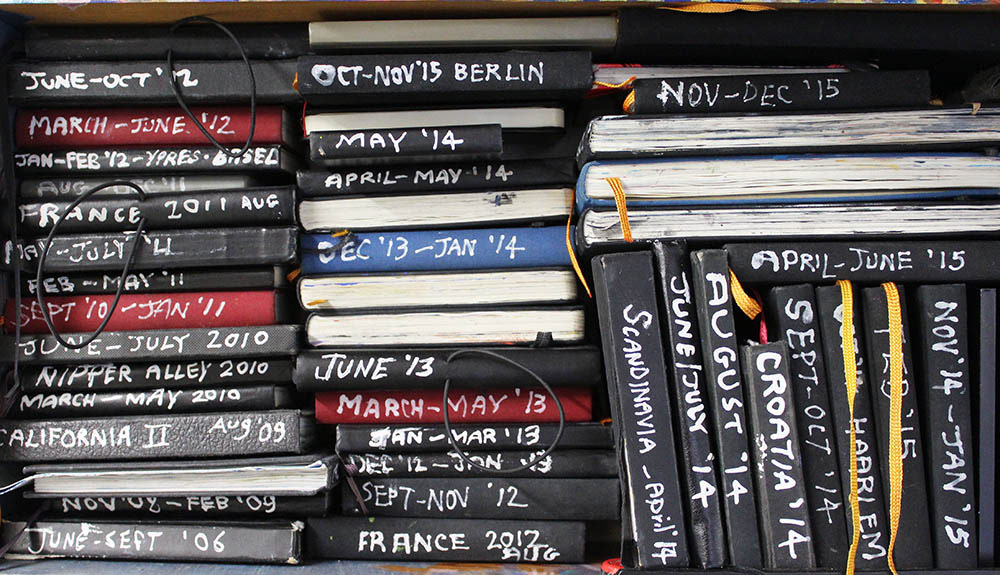 JUNE-OCT '12
MARCH-JUNE '12
JAN-FEB '12-YPRES·BASEL
AUG-DEC '11
FRANCE 2011 AUG
MAY-JULY '11
FEB-MAY '11
SEPT '10-JAN '11
JUNE-JULY 2010
NIPPER ALLEY 2010
MARCH-MAY 2010
CALIFORNIA II AUG '09
NOV '08-FEB '09
JUNE-SEPT '06
OCT-NOV '15 BERLIN
MAY '14
APRIL-MAY '14
DEC '13-JAN '14
JUNE '13
MARCH-MAY '13
JAN-MAR '13
DEC '12-JAN '13
SEPT-NOV '12
FRANCE 2012
AUG
NOV-DEC '15
APRIL-JUNE '15
SCANDINAVIA-April '14
JUNE/JULY '14
AUGUST '14
CROATIA '14
SEPT-OCT '14
HARLEM
FEB '15
NOV '14-JAN '15